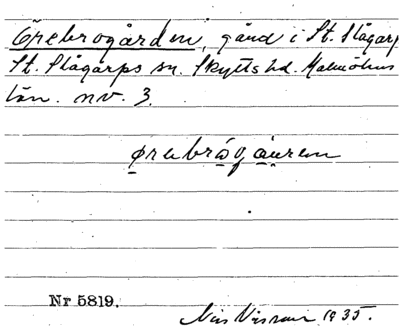 Örebrogården, gård i St. Slågarp
St. Slågarps sn. Skytts hd. Malmöhus
län. nv. 3.
ørebrågåuren
Nr 5819.
1935.